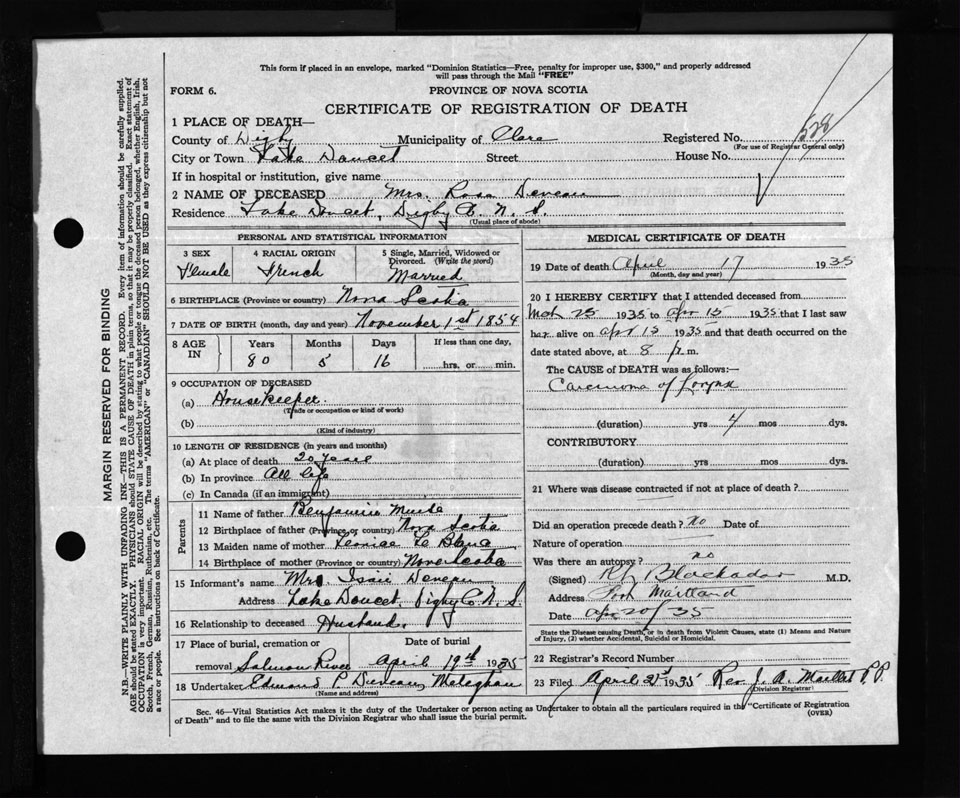 This form if placed in an envelope, marked "Dominion Statistics—Free, penalty for improper use, $300," and properly addressed
will pass through the Mail "FREE"
FORM 6.
PROVINCE OF NOVA SCOTIA
CERTIFICATE OF REGISTRATION OF DEATH
1 PLACE OF DEATH—
County of Digby Municipality of Clare Registered No. 528
(For use of Registrar General only)
City or Town Lake Doucet Street House No.
If in hospital or institution, give name
2 NAME OF DECEASED Mrs. Rosa Deveau
Residence Lake Doucet, Digby Co. N. S.
(Usual place of abode)
PERSONAL AND STATISTICAL INFORMATION
3 SEX 4 RACIAL ORIGIN 5 Single, Married, Widowed or
Divorced. (Write the word)
Female French Married
6 BIRTHPLACE (Province or country) Nova Scotia
7 DATE OF BIRTH (month, day and year) November 1st 1854
8 AGE IN Years Months Days If less than one day,
80 5 16 hrs. or min.
9 OCCUPATION OF DECEASED
(a) Housekeeper.
(Trade or occupation or kind of work)
(b)
(Kind of industry)
10 LENGTH OF RESIDENCE (in years and months)
(a) At place of death 20 years
(b) In province All life
(c) In Canada (if an immigrant)
Parents
11 Name of father Benjamin Muise
12 Birthplace of father (Province or country) Nova Scotia
13 Maiden name of mother Le Blanc
14 Birthplace of mother (Province or country) Nova Scotia
15 Informant's name Mrs. Isaie Deveau
Address Lake Doucet, Digby Co. N. S.
16 Relationship to deceased Husband.
17 Place of burial, cremation or Date of burial
removal Salmon River April 19th 1935
18 Undertaker Edmond P. Duveau, Meteghan
(Name and address)
MEDICAL CERTIFICATE OF DEATH
19 Date of death April 17 1935
(Month, day and year)
20 I HEREBY CERTIFY that I attended deceased from
Mch 25 1935 to Apr 15 1935 that I last saw
her alive on Apr 15 1935 and that death occurred on the
date stated above, at 8 p.m.
The CAUSE of DEATH was as follows:—
Carcinoma of Larynx
(duration) yrs 4 mos dys.
CONTRIBUTORY
(duration) yrs. mos. dys.
21 Where was disease contracted if not at place of death?
Did an operation precede death? no Date of
Nature of operation
Was there an autopsy? no
(Signed) Blackadar M.D.
Address Port Maitland
Date Apr 20/35
State the Disease causing Death, or in death from Violent Causes, state (1) Means and Nature
of Injury, (2) whether Accidental, Suicidal or Homicidal.
22 Registrar's Record Number
23 Filed April 21st 1935 Rev. J. A. Maillet P.P.
(Division Registrar)
Sec. 46—Vital Statistics Act makes it the duty of the Undertaker or person acting as Undertaker to obtain all the particulars required in the "Certificate of Registration
of Death" and to file the same with the Division Registrar who shall issue the burial permit.
(OVER)
MARGIN RESERVED FOR BINDING
N.B.—WRITE PLAINLY WITH UNFADING INK—THIS IS A PERMANENT RECORD. Every item of information should be carefully supplied.
AGE should be stated EXACTLY. PHYSICIANS should STATE CAUSE OF DEATH in plain terms, so that it may be properly classified. Exact statement of
OCCUPATION is very important. RACIAL ORIGIN will be described by stating to what people or tongue the deceased person belonged, whether English, Irish,
Scotch, French, German, Russian, Ruthenian, etc. The terms "AMERICAN" or "CANADIAN" SHOULD NOT BE USED as they express citizenship but not
a race or people. See instructions on back of Certificate.